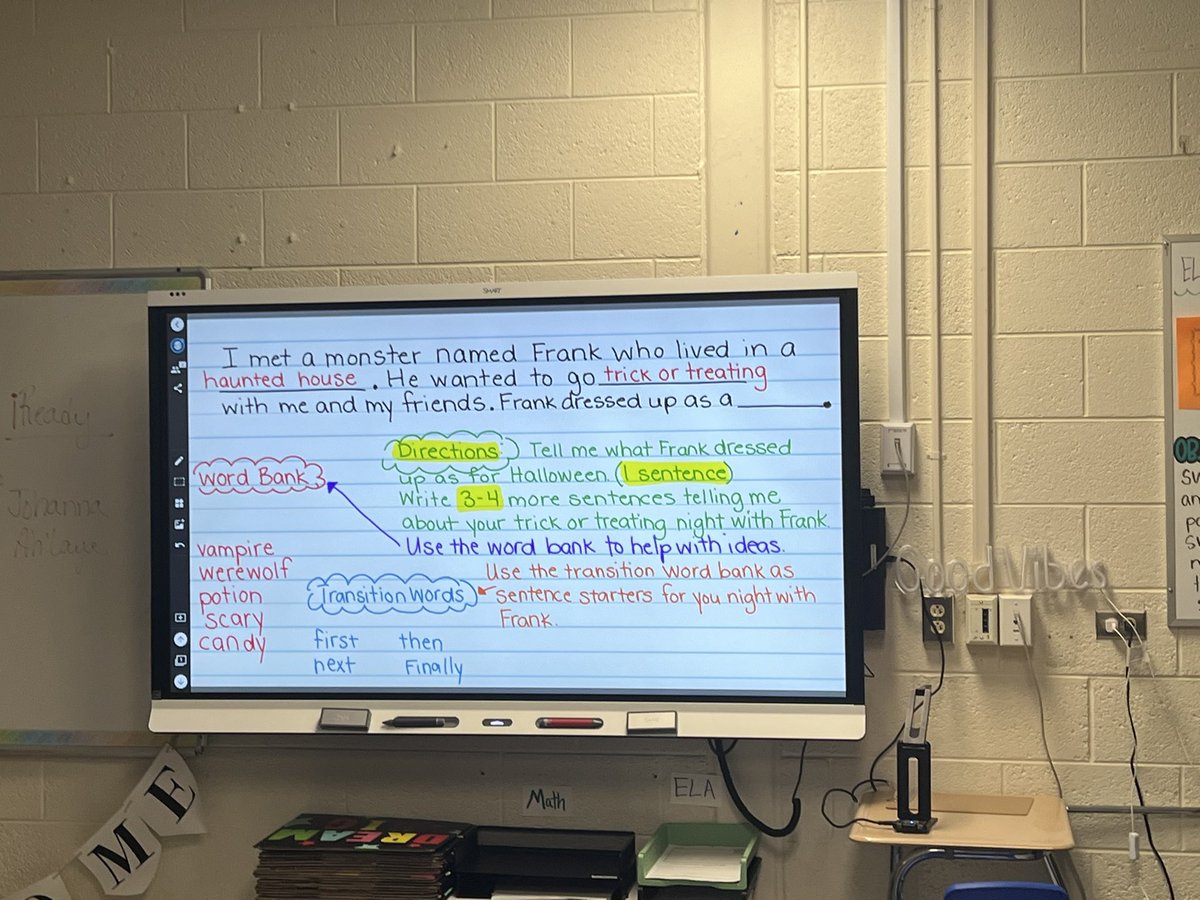 SMART
I met a monster named Frank who lived in a
haunted house. He wanted to go trick or treating
with me and my friends. Frank dressed up as a ______.
Directions: Tell me what Frank dressed
up as for Halloween. (1 sentence)
Write 3-4 more sentences telling me
about your trick or treating night with Frank.
Use the word bank to help with ideas.
Word Bank
vampire
werewolf
potion
scary
candy
Use the transition word bank as
sentence starters for you night with
Frank.
Transition Words
first then
next Finally
iReady
Johanna
Good Vibes
EL
OB
Math
ELA
DREAM
M E